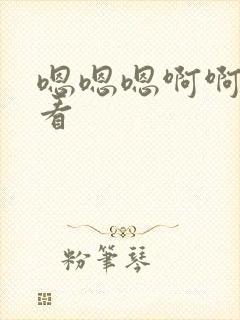 嗯嗯嗯啊啊
看
粉筆琴